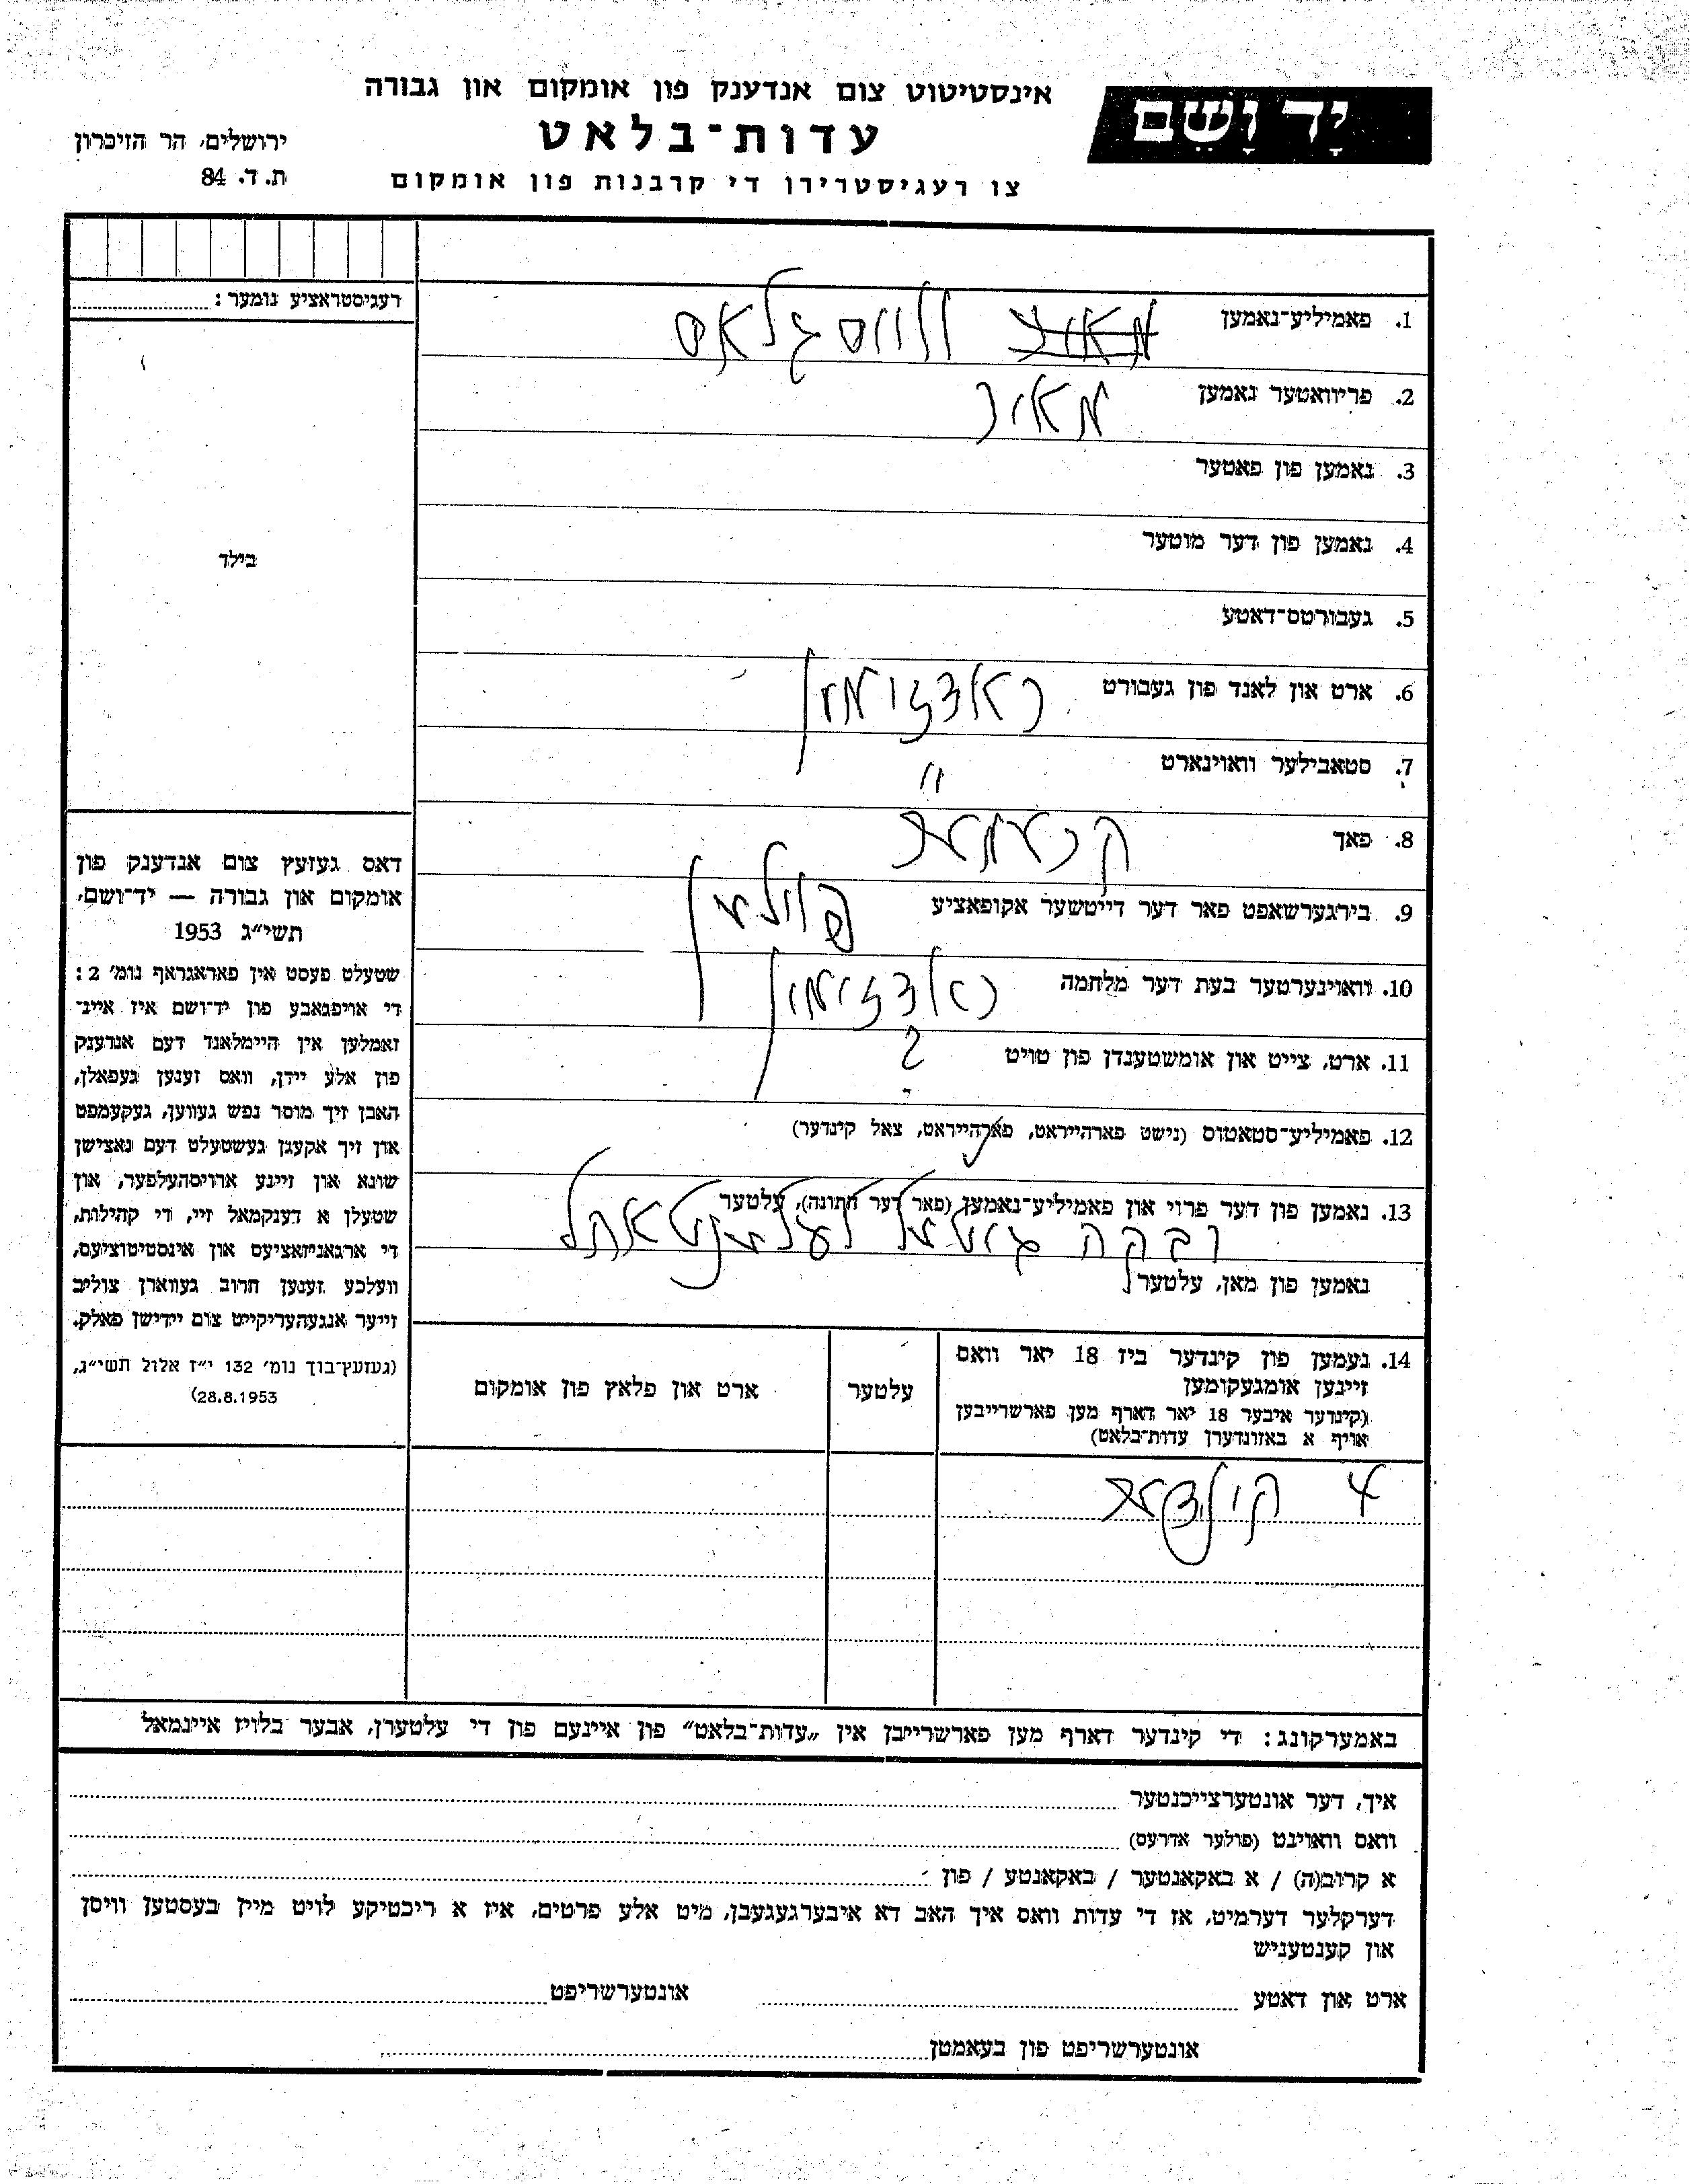 יָד וָשֵׁם
אינסטיטוט צום אנדענק פון אומקום און גבורה
עדות־בלאט
צו רעגיסטרירן די קרבנות פון אומקום
ירושלים, הר הזיכרון
ת. ד. 84
רעגיסטראציע נומער:
בילד
דאס געזעץ צום אנדענק פון
אומקום און גבורה — יד־ושם,
תשי״ג 1953
שטעלט פעסט אין פאראגראף נומ׳ 2:
די אויפגאבע פון יד־ושם איז איינ־
זאמלען אין היימלאנד דעם אנדענק
פון אלע יידן, וואס זענען געפאלן,
האבן זיך מוסר נפש געווען, געקעמפט
און זיך אקעגן געשטעלט דעם נאצישן
שונא און זיינע ארויסהעלפער, און
שטעלן א דענקמאל זיי, די קהילות,
די ארגאניזאציעס און אינסטיטוציעס,
וועלכע זענען חרוב געווארן צוליב
זייער אנגעהעריקייט צום יידישן פאלק.
(געזעץ־בוך נומ׳ 132 י״ז אלול תשי״ג,
28.8.1953)
1. פאמיליע־נאמען ווייסגלאס
2. פריוואטער נאמען
3. נאמען פון פאטער
4. נאמען פון דער מוטער
5. געבורטס־דאטע
6. ארט און לאנד פון געבורט ראדזימין
7. סטאבילער וואוינארט ״
8. פאך קרעמער
9. בירגערשאפט פאר דער דייטשער אקופאציע פוילין
10. וואוינערטער בעת דער מלחמה ראדזימין
11. ארט, צייט און אומשטענדן פון טויט ?
12. פאמיליע־סטאטוס (נישט פארהייראט, פארהייראט, צאל קינדער)
13. נאמען פון דער פרוי און פאמיליע־נאמען (פאר דער חתונה), עלטער
רבקה
נאמען פון מאן, עלטער
14. נעמען פון קינדער ביז 18 יאר וואס
זיינען אומגעקומען
(קינדער איבער 18 יאר דארף מען פארשרייבן
אויף א באזונדערן עדות־בלאט)
עלטער
ארט און פלאץ פון אומקום
4 קינדער
באמערקונג: די קינדער דארף מען פארשרייבן אין „עדות־בלאט״ פון איינעם פון די עלטערן, אבער בלויז איינמאל
איך, דער אונטערצייכנטער
וואס וואוינט (פולער אדרעס)
א קרוב(ה) / א באקאנטער / באקאנטע / פון
דערקלער דערמיט, אז די עדות וואס איך האב דא איבערגעגעבן, מיט אלע פרטים, איז א ריכטיקע לויט מיין בעסטען וויסן
און קענטעניש
ארט און דאטע
אונטערשריפט
אונטערשריפט פון בעאמטן